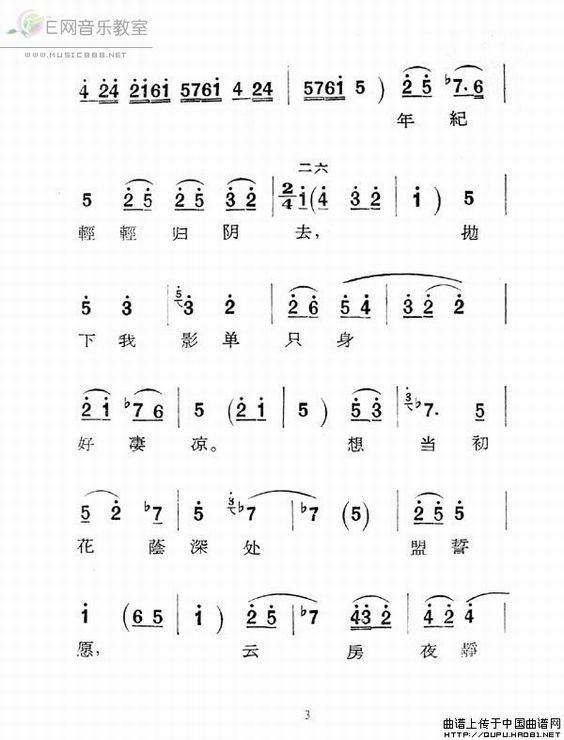 E网音乐教室
www.music888.net
4 24 2161 5761 4 24 | 5761 5 ) 2 5 ♭7. 6 |
年 紀
二六
5 2 5 2 5 3 2 | 2/4 1 ( 4 3 2 | 1 ) 5
輕 輕 归 阴 去， 拋
5 3 | 5 3 2 | 2 6 5 4 | 3 2 2 |
下 我 影 单 只 身
2 1 ♭7 6 | 5 ( 2 1 | 5 ) 5 3 | 3 ♭7. 5
好 凄 凉。 想 当 初
5 2 ♭7 | 5 3 ♭7 | ♭7 (5) | 2 5 5
花 蔭 深 处 盟 誓
1 ( 6 5 | 1 ) 2 5 | ♭7 43 2 | 4 2 4
愿， 云 房 夜 靜
3
曲谱上传于中国曲谱网
HTTP://QUPU.HAO81.NET